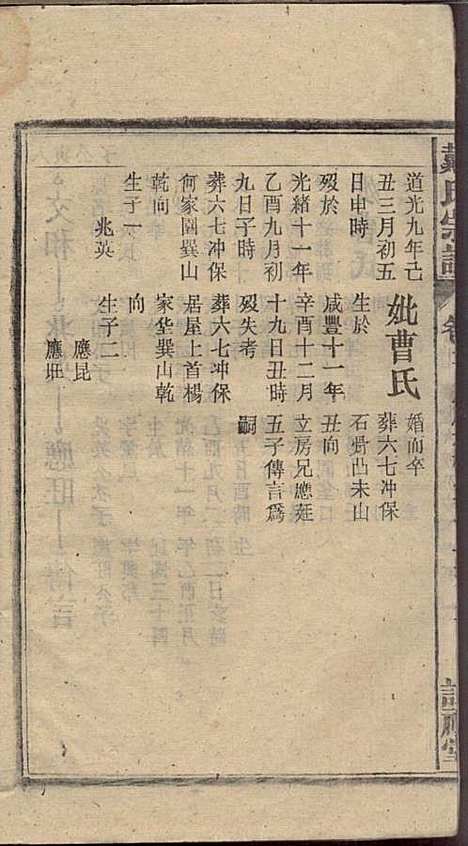 道光九年己
丑三月初五
日申時
歿於
光緒十一年
乙酉九月初
九日子時
葬六七冲保
何家園巽山
乾向
生子一
兆英
妣曹氏
生於
咸豐十一年
辛酉十二月
十九日丑時
歿失考
葬六七冲保
居屋上首楊
家垡巽山乾
向
生子二
應昆
應旺
婚而卒
葬六七冲保
石嘴凸未山
丑向
立房兄應莛
五子傳言爲
嗣
戴氏宗譜
卷